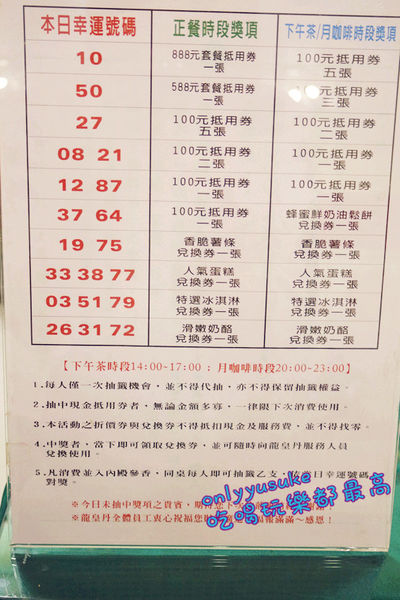 本日幸運號碼 正餐時段獎項 下午茶/月咖啡時段獎項
10 888元套餐抵用券一張 100元抵用券五張
50 588元套餐抵用券一張 100元抵用券三張
27 100元抵用券五張 100元抵用券二張
08 21 100元抵用券二張 100元抵用券一張
12 87 100元抵用券一張 100元抵用券一張
37 64 100元抵用券一張 蜂蜜鮮奶油鬆餅兌換券一張
19 75 香脆薯條兌換券一張 香脆薯條兌換券一張
33 38 77 人氣蛋糕兌換券一張 人氣蛋糕兌換券一張
03 51 79 特選冰淇淋兌換券一張 特選冰淇淋兌換券一張
26 31 72 滑嫩奶酪兌換券一張 滑嫩奶酪兌換券一張
【下午茶時段14:00~17:00 ; 月咖啡時段20:00~23:00】
1.每人僅一次抽籤機會，並不得代抽，亦不得保留抽籤權益。
2.抽中現金抵用券者，無論金額多寡，一律限下次消費使用。
3.本活動之折價券與兌換券不得抵扣現金及服務費，並不得找零。
4.中獎者，當下即可領取兌換券，並可隨時向龍皇丹服務人員
兌換使用。
5.凡消費並入內殿參香，同桌每人即可抽籤乙支，依當日幸運號碼
對獎。
※今日未抽中獎項之貴賓，期待您下
※龍皇丹全體員工衷心祝福您財 福報滿滿~感恩！
onlyyusuke
吃喝玩樂都最高